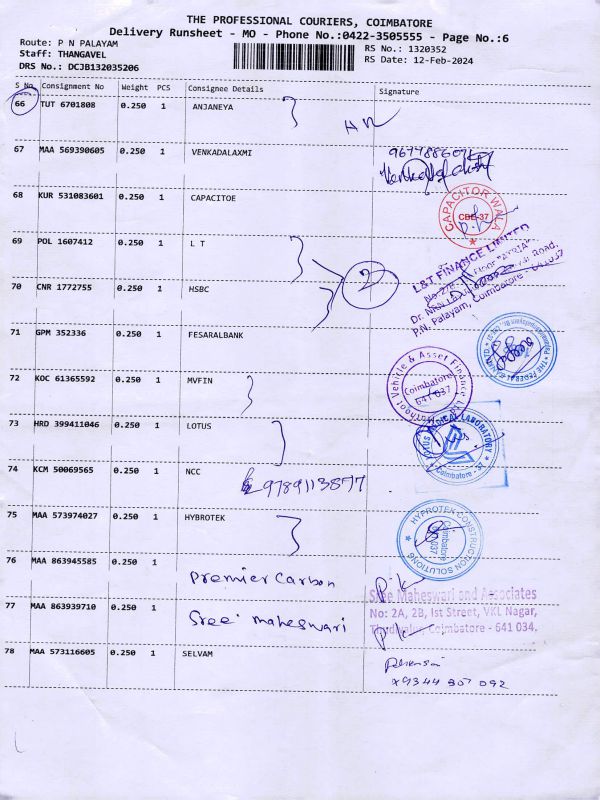 THE PROFESSIONAL COURIERS, COIMBATORE
Delivery Runsheet - MO - Phone No.:0422-3505555 - Page No.:6
Route: P N PALAYAM
RS No.: 1320352
Staff: THANGAVEL
RS Date: 12-Feb-2024
DRS No.: DCJB132035206
S No. Consignment No Weight PCS Consignee Details Signature
66 TUT 6701808 0.250 1 ANJANEYA
67 MAA 569390605 0.250 1 VENKADALAXMI
68 KUR 531083601 0.250 1 CAPACITOE
CAPACITOR WALA
CBE-37
69 POL 1607412 0.250 1 L T
2
L&T FINANCE LIMITED
P.N. Palayam, Coimbatore - 641037
70 CNR 1772755 0.250 1 HSBC
71 GPM 352336 0.250 1 FESARALBANK
72 KOC 61365592 0.250 1 MVFIN
Vehicle & Asset Finance
Coimbatore
641 037
73 HRD 399411046 0.250 1 LOTUS
LOTUS MEDICAL LABORATORY
Coimbatore - 37
74 KCM 50069565 0.250 1 NCC
9789113877
75 MAA 573974027 0.250 1 HYBROTEK
HYPROTEK CONSTRUCTION SOLUTIONS
Coimbatore
76 MAA 863945585 0.250 1 Premier Carbon
77 MAA 863939710 0.250 1 Sree maheswari
Sree Maheswari and Associates
No: 2A, 2B, Ist Street, VKL Nagar,
Coimbatore - 641 034.
78 MAA 573116605 0.250 1 SELVAM